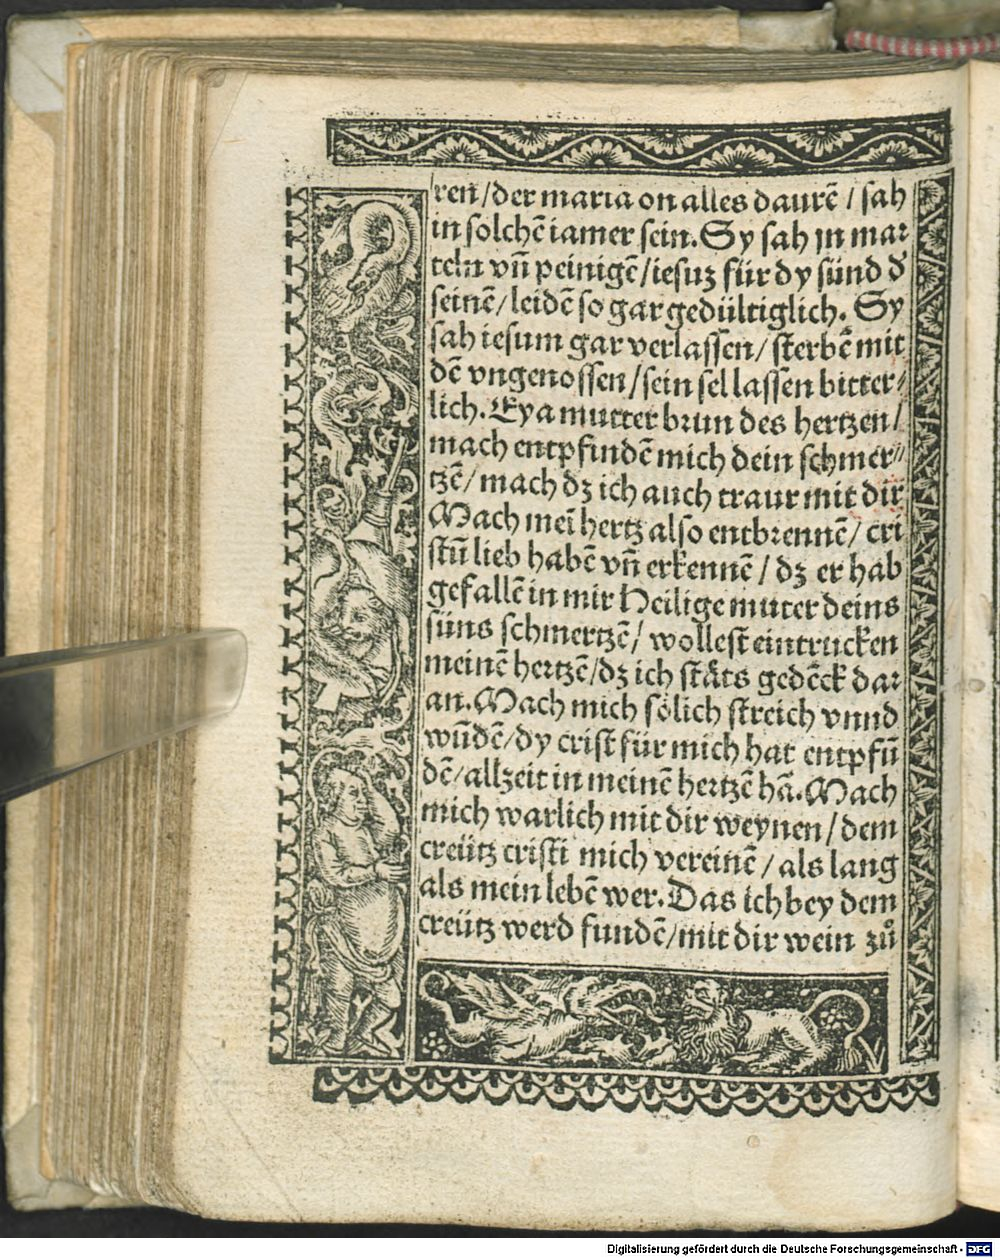 ren/der maria on alles daurē/sah
in solchē iamer sein. Sy sah jn mar⸗
teln vn̄ peinigē/iesuz für dy sünd d̕
seinē/leidē so gar gedültiglich. Sy
sah iesum gar verlassen/sterbē mit
dē vngenossen/sein sel lassen bitter⸗
lich. Eya mutter brun des hertzen/
mach entpfindē mich dein schmer⸗
tzē/mach dz ich auch traur mit dir
Mach mei̅ hertz also entbrennē/cri
stū lieb habē vn̄ erkennē/dz er hab
gefallē in mir Heilige muter deins
süns schmertzē/wollest eintrucken
meinē hertzē/dz ich stäts gedēck dar
an. Mach mich sölich streich vnnd
wūdē/dy crist für mich hat entpfū
dē/allzeit in meinē hertzē hā. Mach
mich warlich mit dir weynen/dem
creütz cristi mich vereinē/als lang
als mein lebē wer. Das ich bey dem
creütz werd fundē/mit dir wein zů
Digitalisierung gefördert durch die Deutsche Forschungsgemeinschaft - DFG